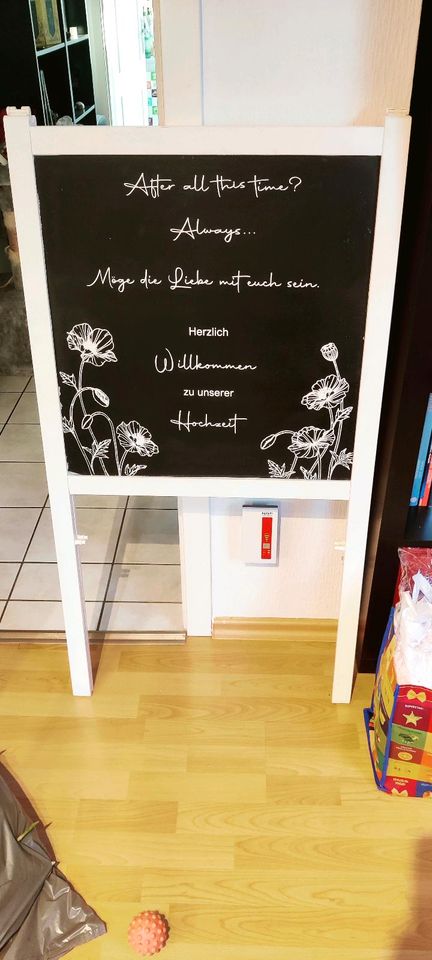 After all this time?
Always...
Möge die Liebe mit euch sein.
Herzlich
Willkommen
zu unserer
Hochzeit